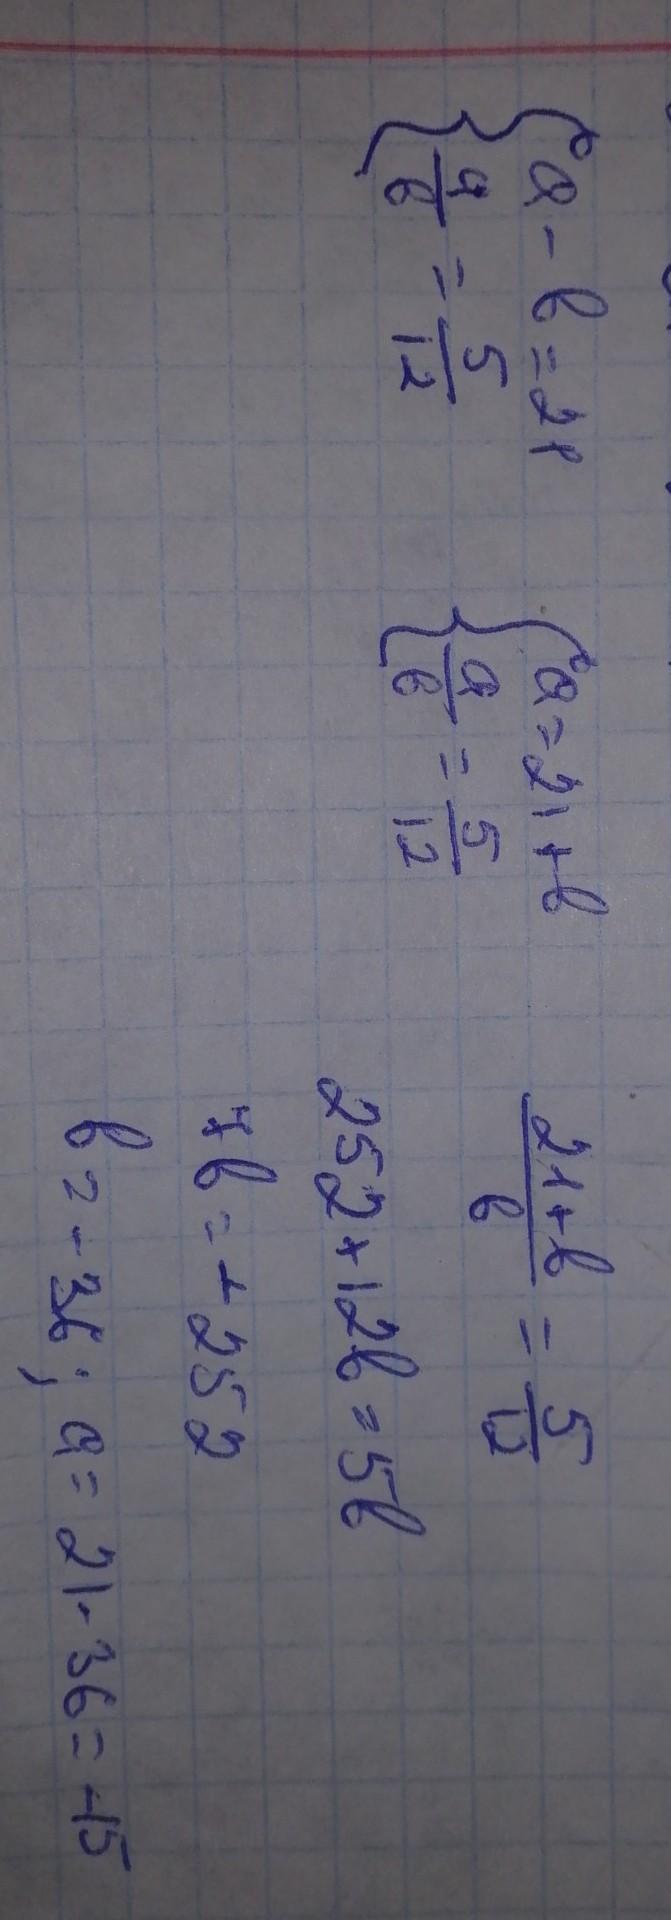 { a - b = 21
a/b = 5/12
{ a = 21 + b
a/b = 5/12
(21 + b)/b = 5/12
252 + 12b = 5b
7b = - 252
b = - 36; a = 21 - 36 = -15